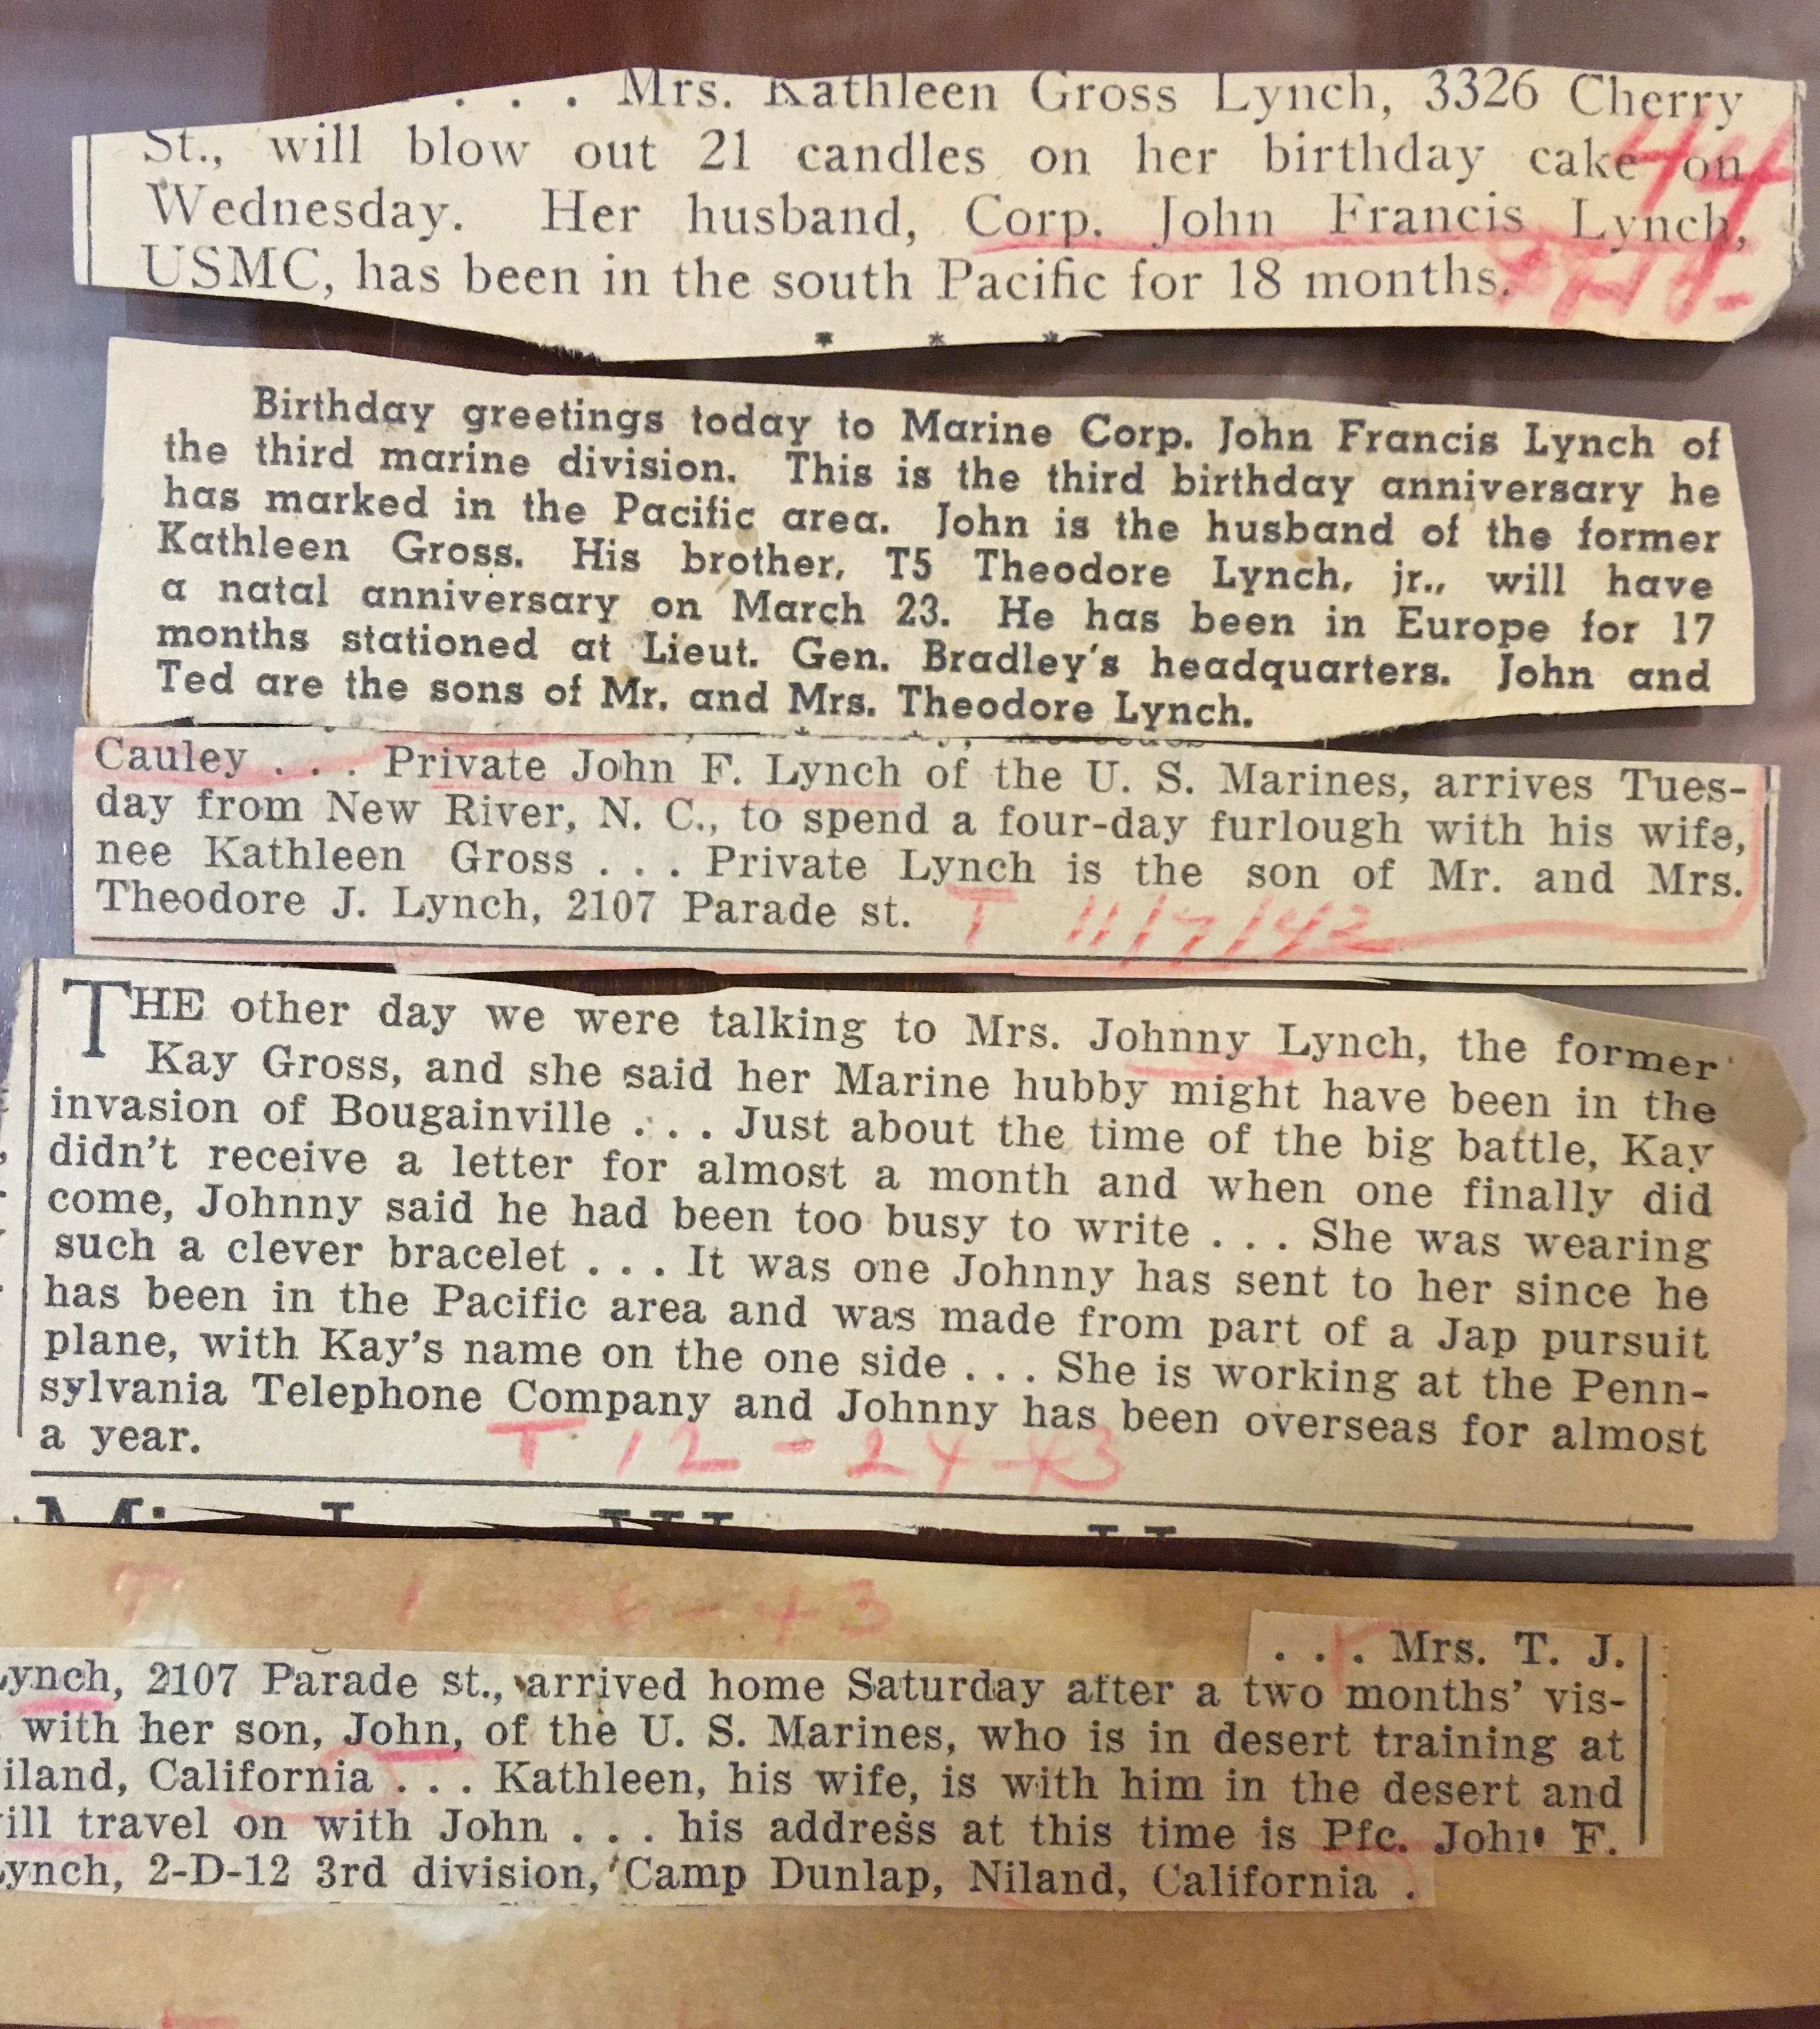 . . . Mrs. Kathleen Gross Lynch, 3326 Cherry
St., will blow out 21 candles on her birthday cake on
Wednesday. Her husband, Corp. John Francis Lynch,
USMC, has been in the south Pacific for 18 months.
44
* * *
Birthday greetings today to Marine Corp. John Francis Lynch of
the third marine division. This is the third birthday anniversary he
has marked in the Pacific area. John is the husband of the former
Kathleen Gross. His brother, T5 Theodore Lynch, jr., will have
a natal anniversary on March 23. He has been in Europe for 17
months stationed at Lieut. Gen. Bradley's headquarters. John and
Ted are the sons of Mr. and Mrs. Theodore Lynch.
Cauley . . . Private John F. Lynch of the U. S. Marines, arrives Tues-
day from New River, N. C., to spend a four-day furlough with his wife,
nee Kathleen Gross . . . Private Lynch is the son of Mr. and Mrs.
Theodore J. Lynch, 2107 Parade st.
T 11/7/42
THE other day we were talking to Mrs. Johnny Lynch, the former
Kay Gross, and she said her Marine hubby might have been in the
invasion of Bougainville . . . Just about the time of the big battle, Kay
didn't receive a letter for almost a month and when one finally did
come, Johnny said he had been too busy to write . . . She was wearing
such a clever bracelet . . . It was one Johnny has sent to her since he
has been in the Pacific area and was made from part of a Jap pursuit
plane, with Kay's name on the one side . . . She is working at the Penn-
sylvania Telephone Company and Johnny has been overseas for almost
a year.
T 12-24-43
T 1-26-43
. . . Mrs. T. J.
Lynch, 2107 Parade st., arrived home Saturday after a two months' vis-
with her son, John, of the U. S. Marines, who is in desert training at
iland, California . . . Kathleen, his wife, is with him in the desert and
ill travel on with John . . . his address at this time is Pfc. John F.
ynch, 2-D-12 3rd division, Camp Dunlap, Niland, California .